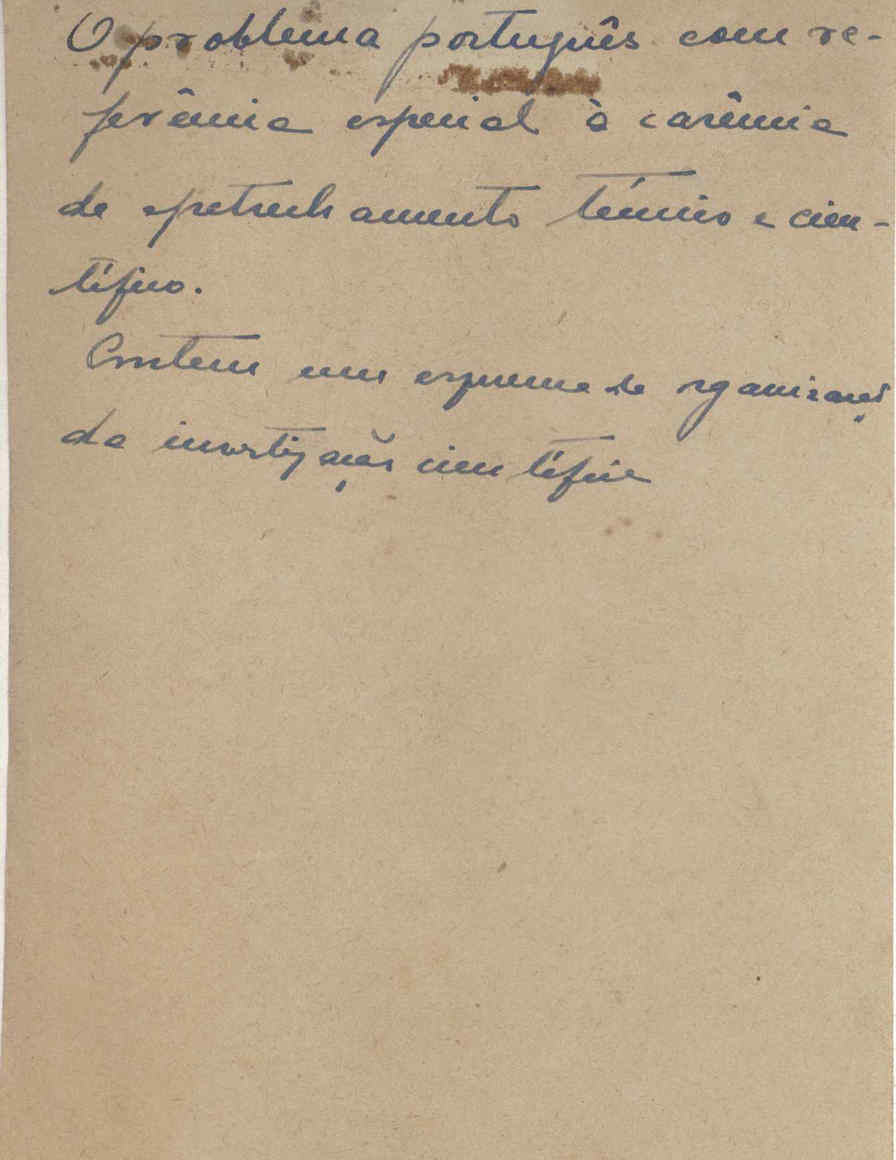 O problema português com re-
ferência especial à carência
de apetrechamento técnico e cien-
tífico.
Contem um esquema de organização
da investigação científica